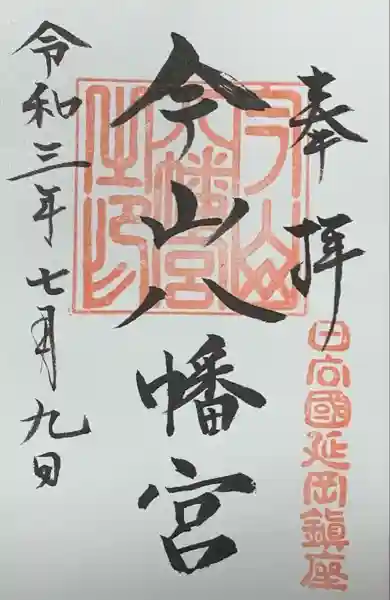 奉拝
日向國延岡鎮座
今山八幡宮
今山八幡宮之印
令和三年七月九日